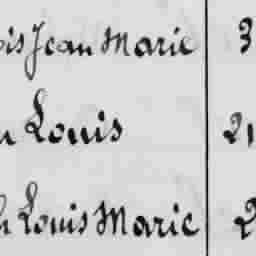 ois Jean Marie 3
n Louis 21
h Louis Marie 2